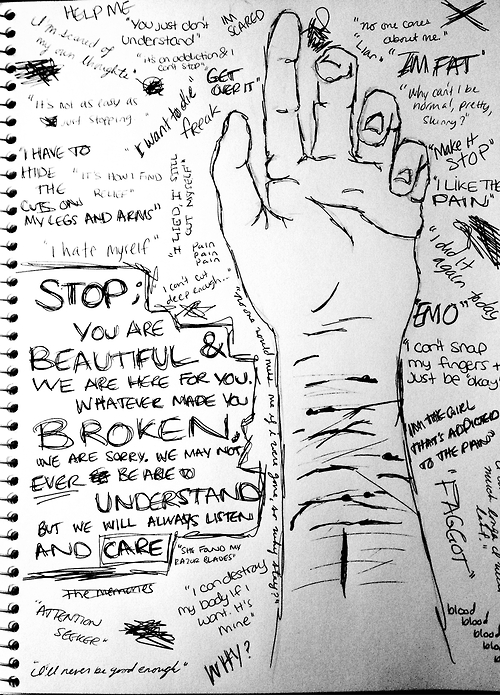 HELP ME
I'm scared of
my own thoughts"
"You just don't
understand"
IM
SCARED
"it's an addiction & I
can't stop"
"GET
OVER IT"
"It's not as easy as
just stopping"
I want to die
freak
I HAVE TO
HIDE
THE
CUTS ON
MY LEGS AND ARMS"
"IT'S HOW I FIND
RELIEF"
"I LIED, I STILL
CUT MYSELF"
"I hate myself"
Pain
Pain
Pain
I can't cut
deep enough..."
STOP;
YOU ARE
BEAUTIFUL &
WE ARE HERE FOR YOU.
WHATEVER MADE YOU
BROKEN,
WE ARE SORRY. WE MAY NOT
EVER BE ABLE TO
UNDERSTAND
BUT WE WILL ALWAYS LISTEN
AND CARE
"SHE FOUND MY
RAZOR BLADES"
the memories
"ATTENTION
SEEKER"
"I can destroy
my body if I
want. It's
mine"
WHY?
"i'll never be good enough"
"no one cares
about me."
"Liar"
"IM FAT"
"Why can't I be
normal, pretty,
skinny?"
"Make it
STOP"
"I LIKE THE
PAIN"
"I did it
again today
"EMO"
"I can't snap
my fingers +
just be okay"
IM THE GIRL
THAT'S ADDICTED
TO THE PAIN"
"FAGGOT"
blood
blood
blood
blood